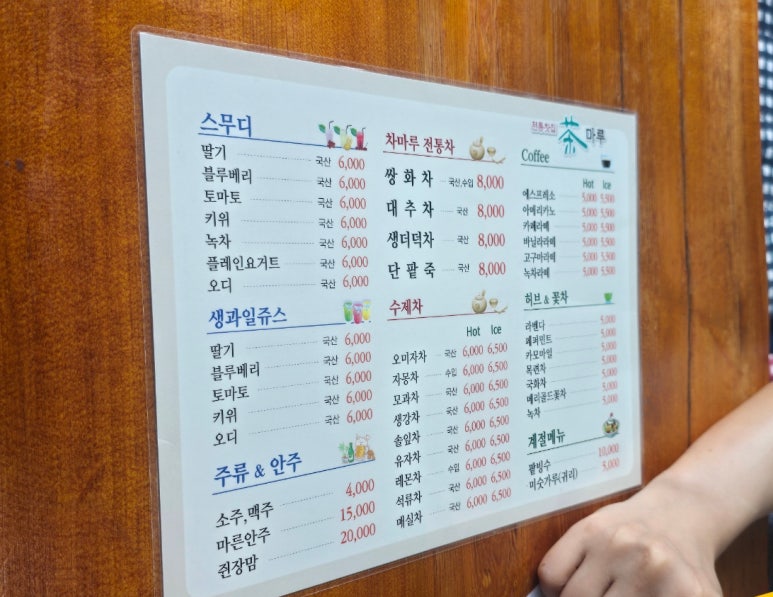 스무디
딸기 국산 6,000
블루베리 국산 6,000
토마토 국산 6,000
키위 국산 6,000
녹차 국산 6,000
플레인요거트 국산 6,000
오디 국산 6,000
생과일쥬스
딸기 국산 6,000
블루베리 국산 6,000
토마토 국산 6,000
키위 국산 6,000
오디 국산 6,000
주류 & 안주
소주,맥주 4,000
마른안주 15,000
쥔장맘 20,000
차마루 전통차
쌍화차 국산,수입 8,000
대추차 국산 8,000
생더덕차 국산 8,000
단팥죽 국산 8,000
수제차
Hot Ice
오미자차 국산 6,000 6,500
자몽차 수입 6,000 6,500
모과차 국산 6,000 6,500
생강차 국산 6,000 6,500
솔잎차 국산 6,000 6,500
유자차 국산 6,000 6,500
레몬차 수입 6,000 6,500
석류차 국산 6,000 6,500
매실차 국산 6,000 6,500
전통찻집 茶 마루
Coffee
Hot Ice
에스프레소 5,000 5,500
아메리카노 5,000 5,500
카페라떼 5,000 5,500
바닐라라떼 5,000 5,500
고구마라떼 5,000 5,500
녹차라떼 5,000 5,500
허브 & 꽃차
라벤다 5,000
페퍼민트 5,000
카모마일 5,000
목련차 5,000
국화차 5,000
메리골드꽃차 5,000
녹차 5,000
계절메뉴
팥빙수 10,000
미숫가루(귀리) 5,000